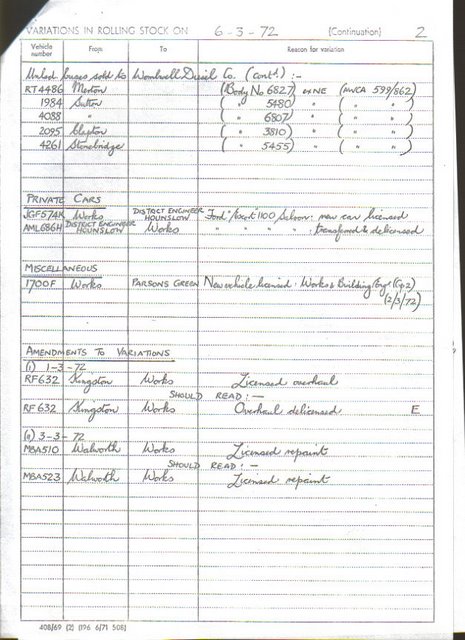 VARIATIONS IN ROLLING STOCK ON 6-3-72 (Continuation) 2
Vehicle number From To Reason for variation
Unlicd buses sold to Wombwell Diesel Co. (contd) :-
RT4486 Merton (Body No 6827) W+NE (AWCA 599/862)
1984 Sutton ( " 5480) " ( " " )
4088 " ( " 6807) " ( " " )
2095 Clapton ( " 3810) " ( " " )
4261 Stonebridge ( " 5455) " ( " " )
PRIVATE CARS
JGF574K Works DISTRICT ENGINEER HOUNSLOW Ford "Escort" 1100 Saloon: new car licensed
AML686H DISTRICT ENGINEER HOUNSLOW Works " " " " : transferred & delicensed
MISCELLANEOUS
1700F Works PARSONS GREEN New vehicle licensed. Works & Building Engr
(2/3/72)
AMENDMENTS TO VARIATIONS
(i) 1-3-72
RF632 Kingston Works Licensed overhaul
SHOULD READ:-
RF 632 Kingston Works Overhaul delicensed E
3-3-72
MBA510 Walworth Works Licensed repaint
SHOULD READ:-
MBA523 Walworth Works Licensed repaint
408/69 (2) (196 6/71 508)